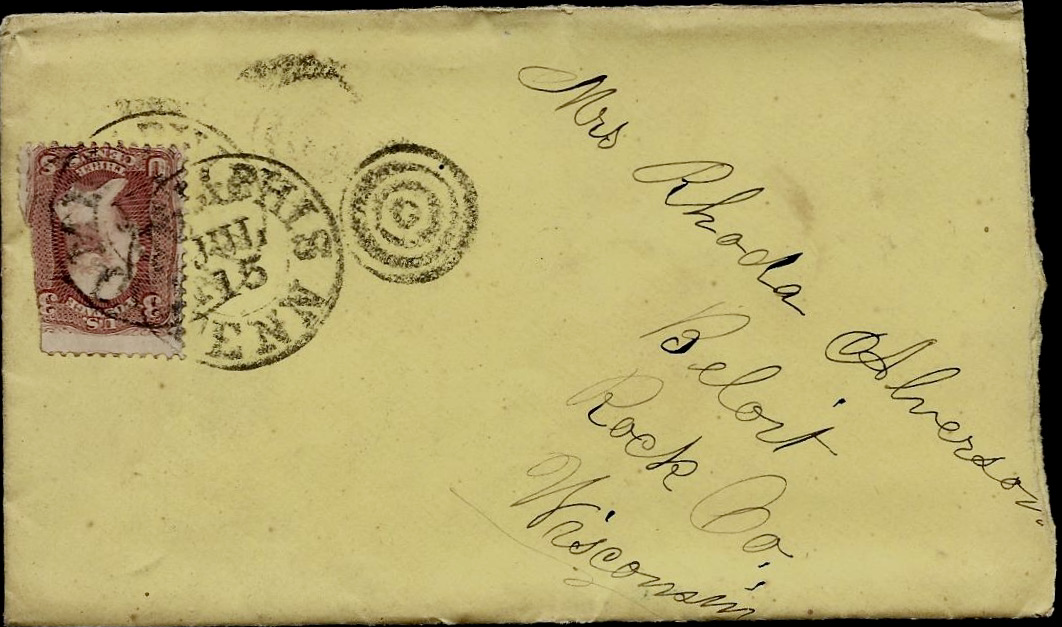 Mrs Rhoda Alverson
Beloit
Rock Co.
Wisconsin
MEMPHIS TENN
JUL
15
U 3
THREE CENTS
3 U.S. POSTAGE 3